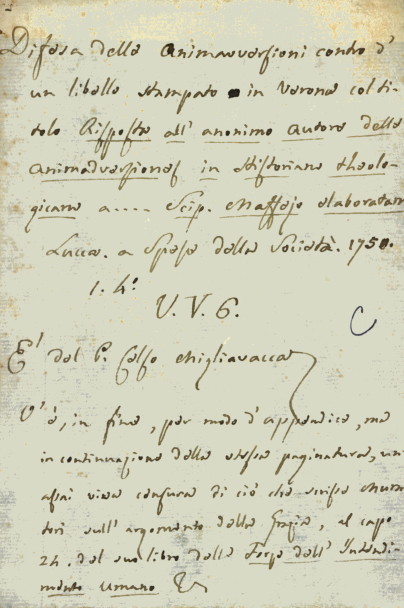 Difesa delle Animavversioni contro d'
un libello stampato in Verona col ti-
tolo Risposta all' anonimo autore delle
Animadversiones in Historiam theolo-
gicam a ..... Scip. Maffejo elaboratam
Lucca. a spese della Società. 1750.
1. 4°.
V. V. 6.
E' del P. Celso Migliavacca
V' è, in fine, per modo d'appendice, ma
in continuazione della stessa paginatura, un'
assai viva censura di ciò che scrisse Mura-
tori sull' argomento della Grazia, al capo
24. del suo libro delle Forze dell' Intendi-
mento umano